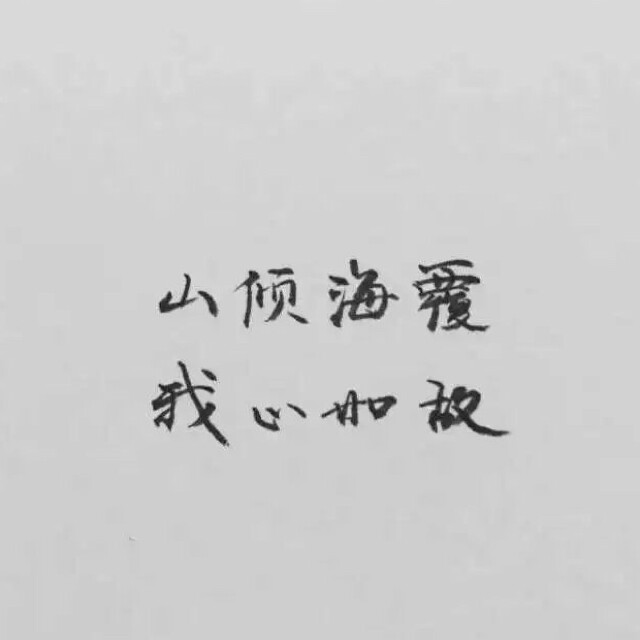 山倾海覆
我心如故